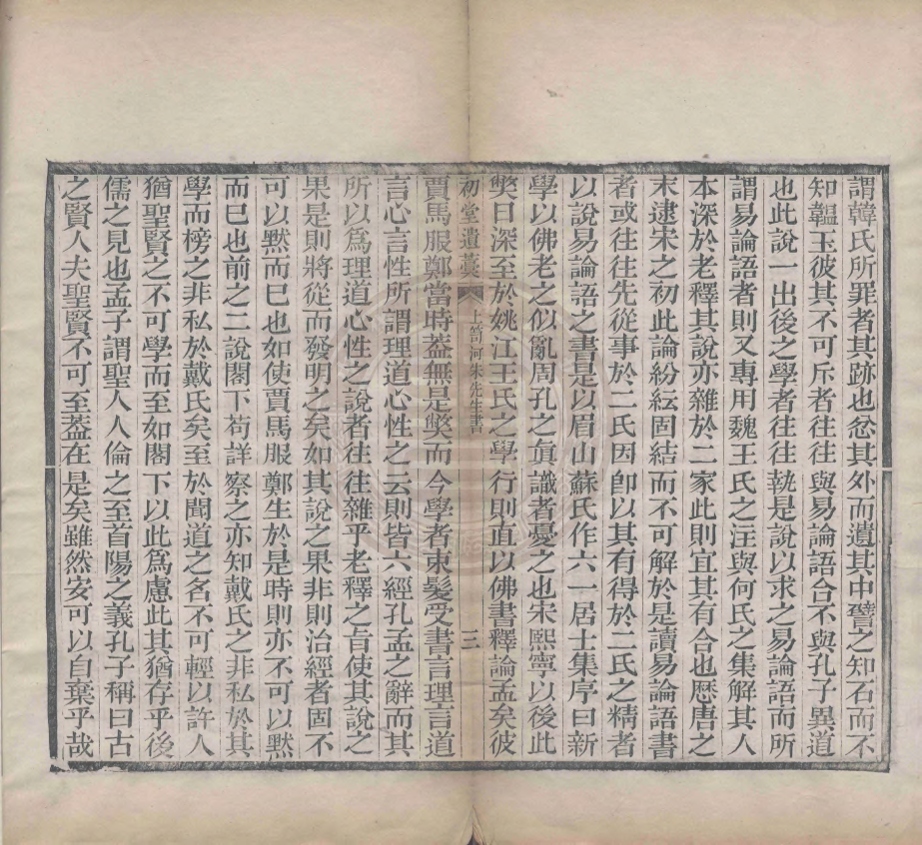 謂韓氏所罪者其跡也忿其外而遺其中譬之知石而不
知韞玉彼其不可斥者往往與易論語合不與孔子異道
也此說一出後之學者往往執是說以求之易論語而所
謂易論語者則又專用魏王氏之注與何氏之集解其人
本深於老釋其說亦雜於二家此則宜其有合也歷唐之
末逮宋之初此論紛紜固結而不可解於是讀易論語書
者或往往先從事於二氏因卽以其有得於二氏之精者
以說易論語之書是以眉山蘇氏作六一居士集序曰新
學以佛老之似亂周孔之眞識者憂之也宋熙寧以後此
獘日深至於姚江王氏之學行則直以佛書釋論孟矣彼
初堂遺藁
上笥河朱先生書
三
賈馬服鄭當時蓋無是獘而今學者束髮受書言理言道
言心言性所謂理道心性之云則皆六經孔孟之辭而其
所以爲理道心性之說者往往雜乎老釋之旨使其說之
果是則將從而發明之矣如其說之果非則治經者固不
可以默而已也如使賈馬服鄭生於是時則亦不可以默
而已也前之二說閣下苟詳察之亦知戴氏之非私於其
學而榜之非私於戴氏矣至於聞道之名不可輕以許人
猶聖賢之不可學而至如閣下以此爲慮此其猶存乎後
儒之見也孟子謂聖人人倫之至首陽之義孔子稱曰古
之賢人夫聖賢不可至蓋在是矣雖然安可以自棄乎哉